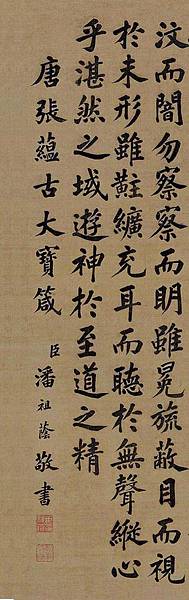 汶而闇勿察察而明雖冕旒蔽目而視
於未形雖黈纊充耳而聽於無聲縱心
乎湛然之域遊神於至道之精
唐張蘊古大寶箴
臣潘祖蔭敬書